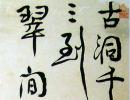 古洞千
三到
翠间